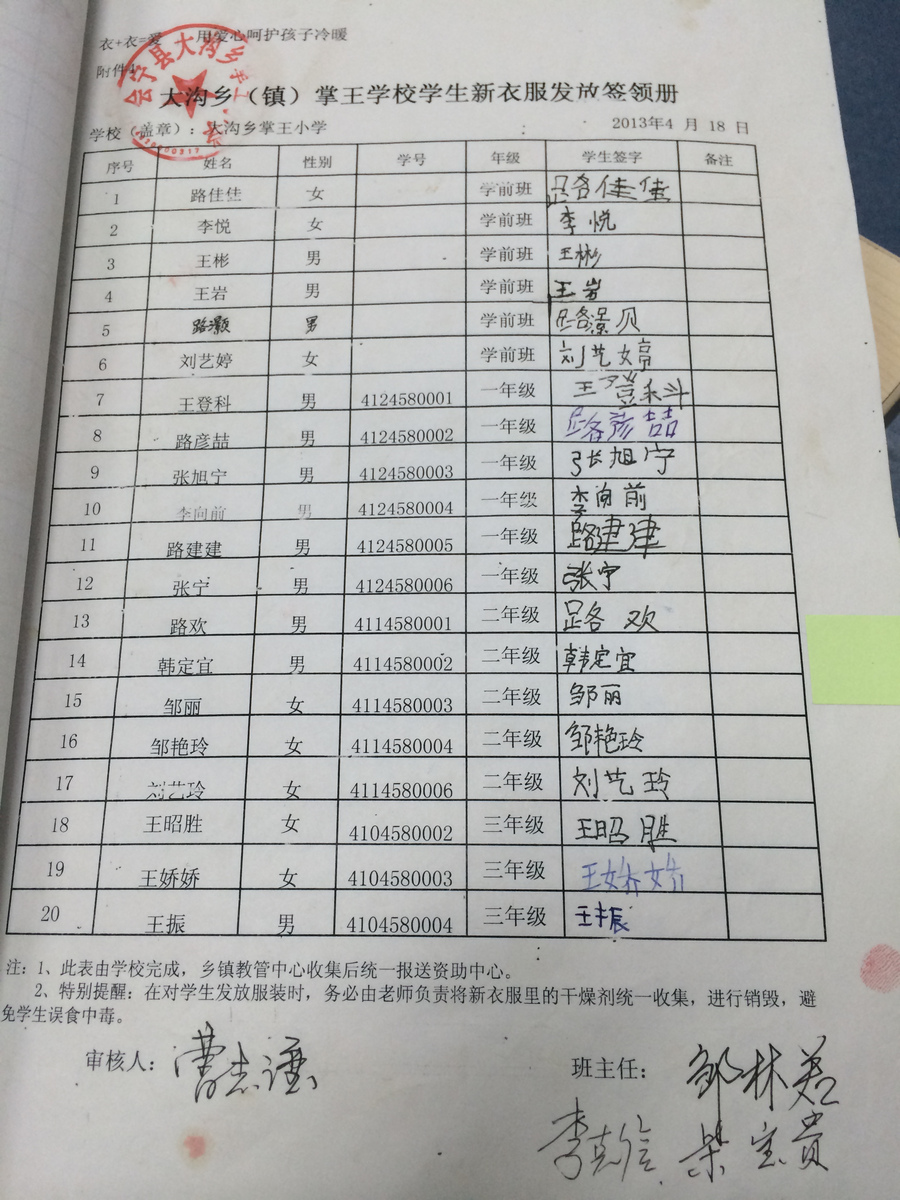 衣+衣=爱 用爱心呵护孩子冷暖
附件4
会宁县大沟乡
大沟乡（镇）掌王学校学生新衣服发放签领册
学校（盖章）：大沟乡掌王小学 2013年4 月 18 日
序号 姓名 性别 学号 年级 学生签字 备注
1 路佳佳 女 学前班 路佳佳
2 李悦 女 学前班 李悦
3 王彬 男 学前班 王彬
4 王岩 男 学前班 王岩
5 路灏 男 学前班 路灏
6 刘艺婷 女 学前班 刘艺婷
7 王登科 男 4124580001 一年级 王登科
8 路彦喆 男 4124580002 一年级 路彦喆
9 张旭宁 男 4124580003 一年级 张旭宁
10 李向前 男 4124580004 一年级 李向前
11 路建建 男 4124580005 一年级 路建建
12 张宁 男 4124580006 一年级 张宁
13 路欢 男 4114580001 二年级 路欢
14 韩定宜 男 4114580002 二年级 韩定宜
15 邹丽 女 4114580003 二年级 邹丽
16 邹艳玲 女 4114580004 二年级 邹艳玲
17 刘艺玲 女 4114580006 二年级 刘艺玲
18 王昭胜 女 4104580002 三年级 王昭胜
19 王娇娇 女 4104580003 三年级 王娇娇
20 王振 男 4104580004 三年级 王振
注：1、此表由学校完成，乡镇教管中心收集后统一报送资助中心。
2、特别提醒：在对学生发放服装时，务必由老师负责将新衣服里的干燥剂统一收集，进行销毁，避
免学生误食中毒。
审核人： 曹志 班主任： 邹林
李 柴宝贵